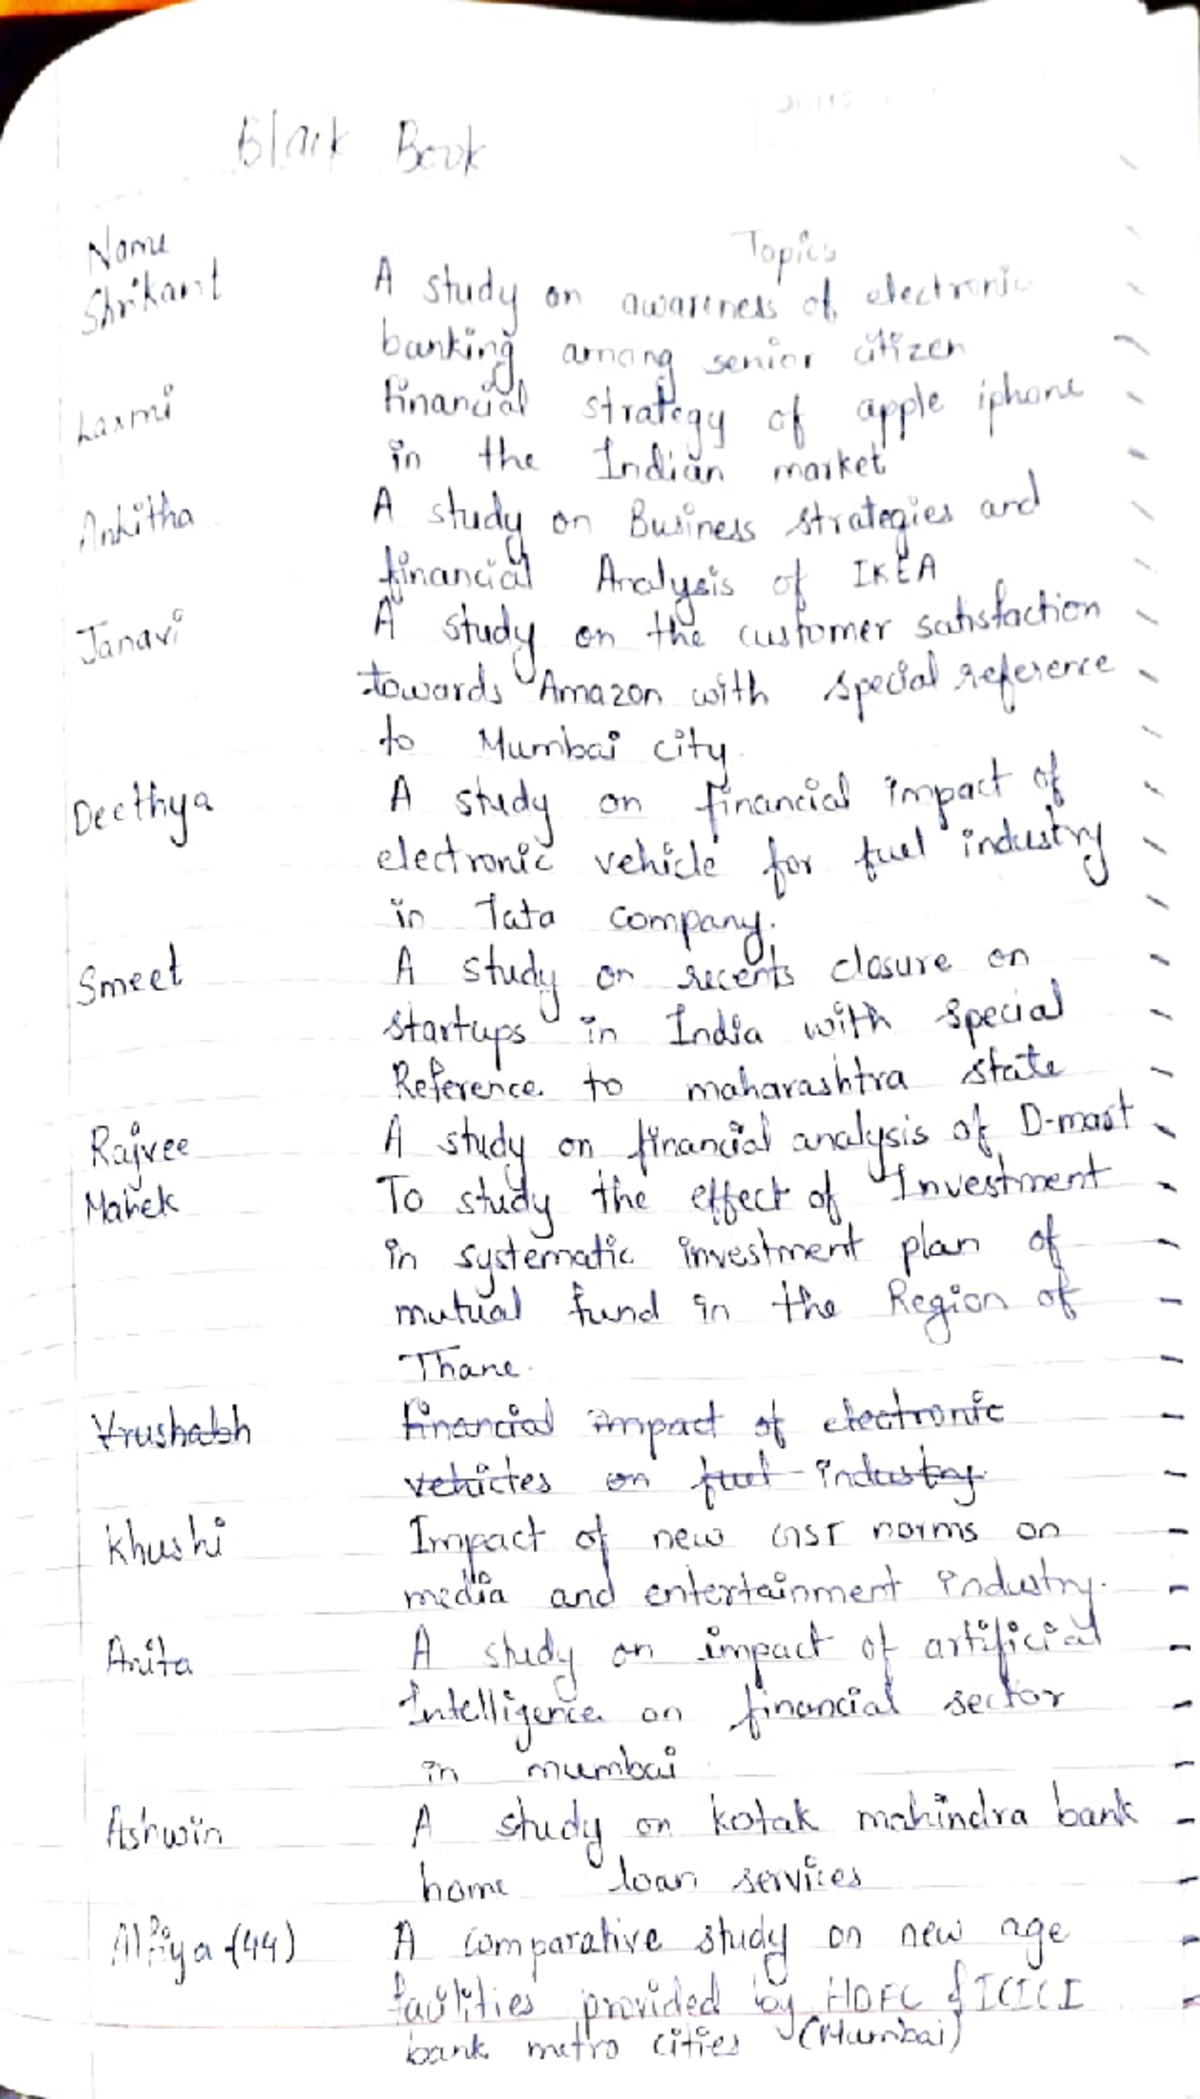 Black Book
Name Topics
Shrikant A study on awareness of electronic
banking among senior citizen
Laxmi financial strategy of apple iphone
in the Indian market
Ankitha A study on Business strategies and
financial Analysis of IKEA
Janavi A study on the customer satisfaction
towards Amazon with special reference
to Mumbai city.
Deethya A study on financial impact of
electronic vehicle for fuel industry
in Tata company.
Smeet A study on recents closure on
startups in India with special
Reference to maharashtra state
Rajvee A study on financial analysis of D-mart
Mahek To study the effect of Investment
in systematic investment plan of
mutual fund in the Region of
Thane.
Vrushabh financial impact of electronic
vehicles on fuel industry.
Khushi Impact of new GST norms on
media and entertainment industry.
Anita A study on impact of artificial
Intelligence on financial sector
in mumbai
Ashwin A study on kotak mahindra bank
home loan services
Alfiya-(44) A comparative study on new age
facilities provided by HDFC & ICICI
bank metro cities (Mumbai)